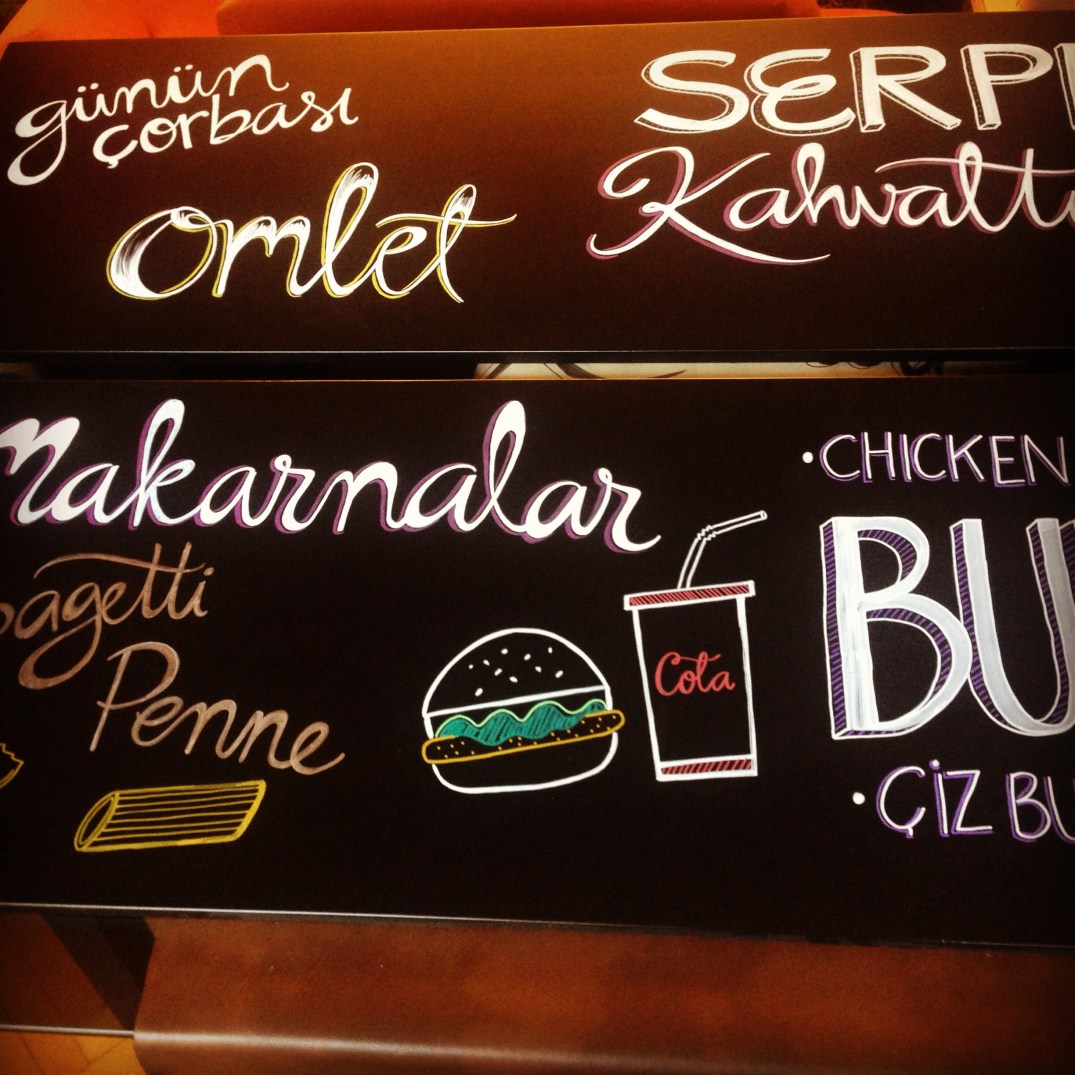 günün
çorbası
Omlet
SERP
Kahvaltı
Makarnalar
pagetti
Penne
Cola
CHICKEN
BU
ÇİZ BU